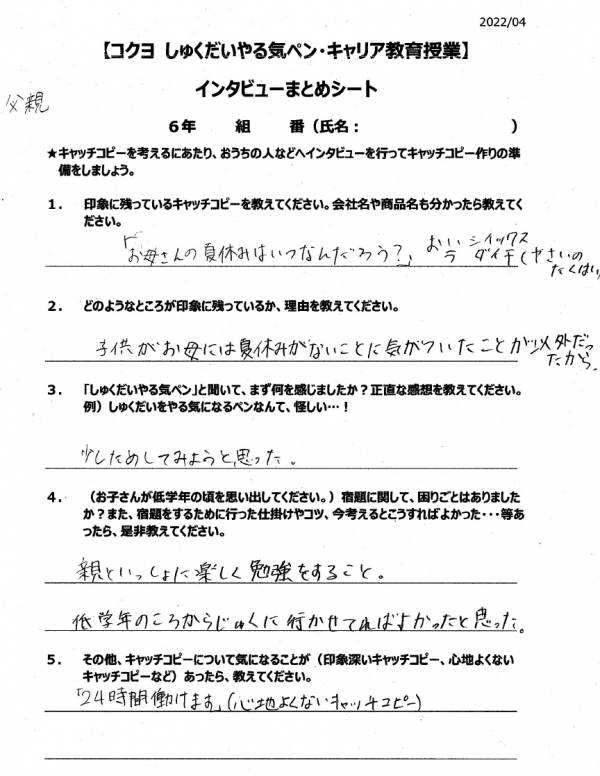 2022/04
【コクヨ しゅくだいやる気ペン・キャリア教育授業】
インタビューまとめシート
父親
6年 組 番（氏名： ）
★キャッチコピーを考えるにあたり、おうちの人などへインタビューを行ってキャッチコピー作りの準
備をしましょう。
1． 印象に残っているキャッチコピーを教えてください。会社名や商品名も分かったら教えてく
ださい。
「お母さんの夏休みはいつなんだろう？」 おいシイックス
ラ ダイチ（やさいの
たくはい）
2． どのようなところが印象に残っているか、理由を教えてください。
子供がお母には夏休みがないことに気がついたことが以外だっ
たから。
3． 「しゅくだいやる気ペン」と聞いて、まず何を感じましたか？正直な感想を教えてください。
例）しゅくだいをやる気になるペンなんて、怪しい…！
少しためしてみようと思った。
4． （お子さんが低学年の頃を思い出してください。）宿題に関して、困りごとはありました
か？また、宿題をするために行った仕掛けやコツ、今考えるとこうすればよかった・・・等あ
ったら、是非教えてください。
親といっしょに楽しく勉強をすること。
低学年のころからじゅくに行かせてればよかったと思った。
5． その他、キャッチコピーについて気になることが（印象深いキャッチコピー、心地よくない
キャッチコピーなど）あったら、教えてください。
「24時間働けます」（心地よくないキャッチコピー）